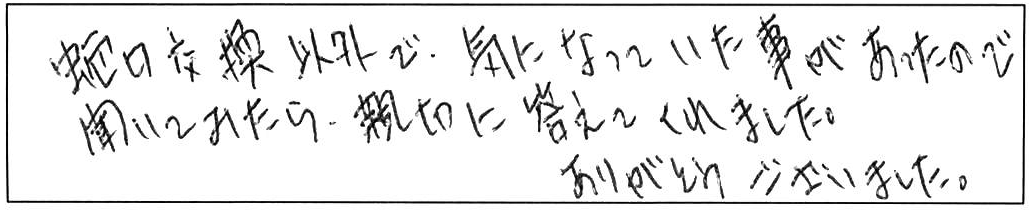 蛇口交換以外で、気になっていた事があったので
聞いてみたら、親切に答えてくれました。
ありがとうございました。